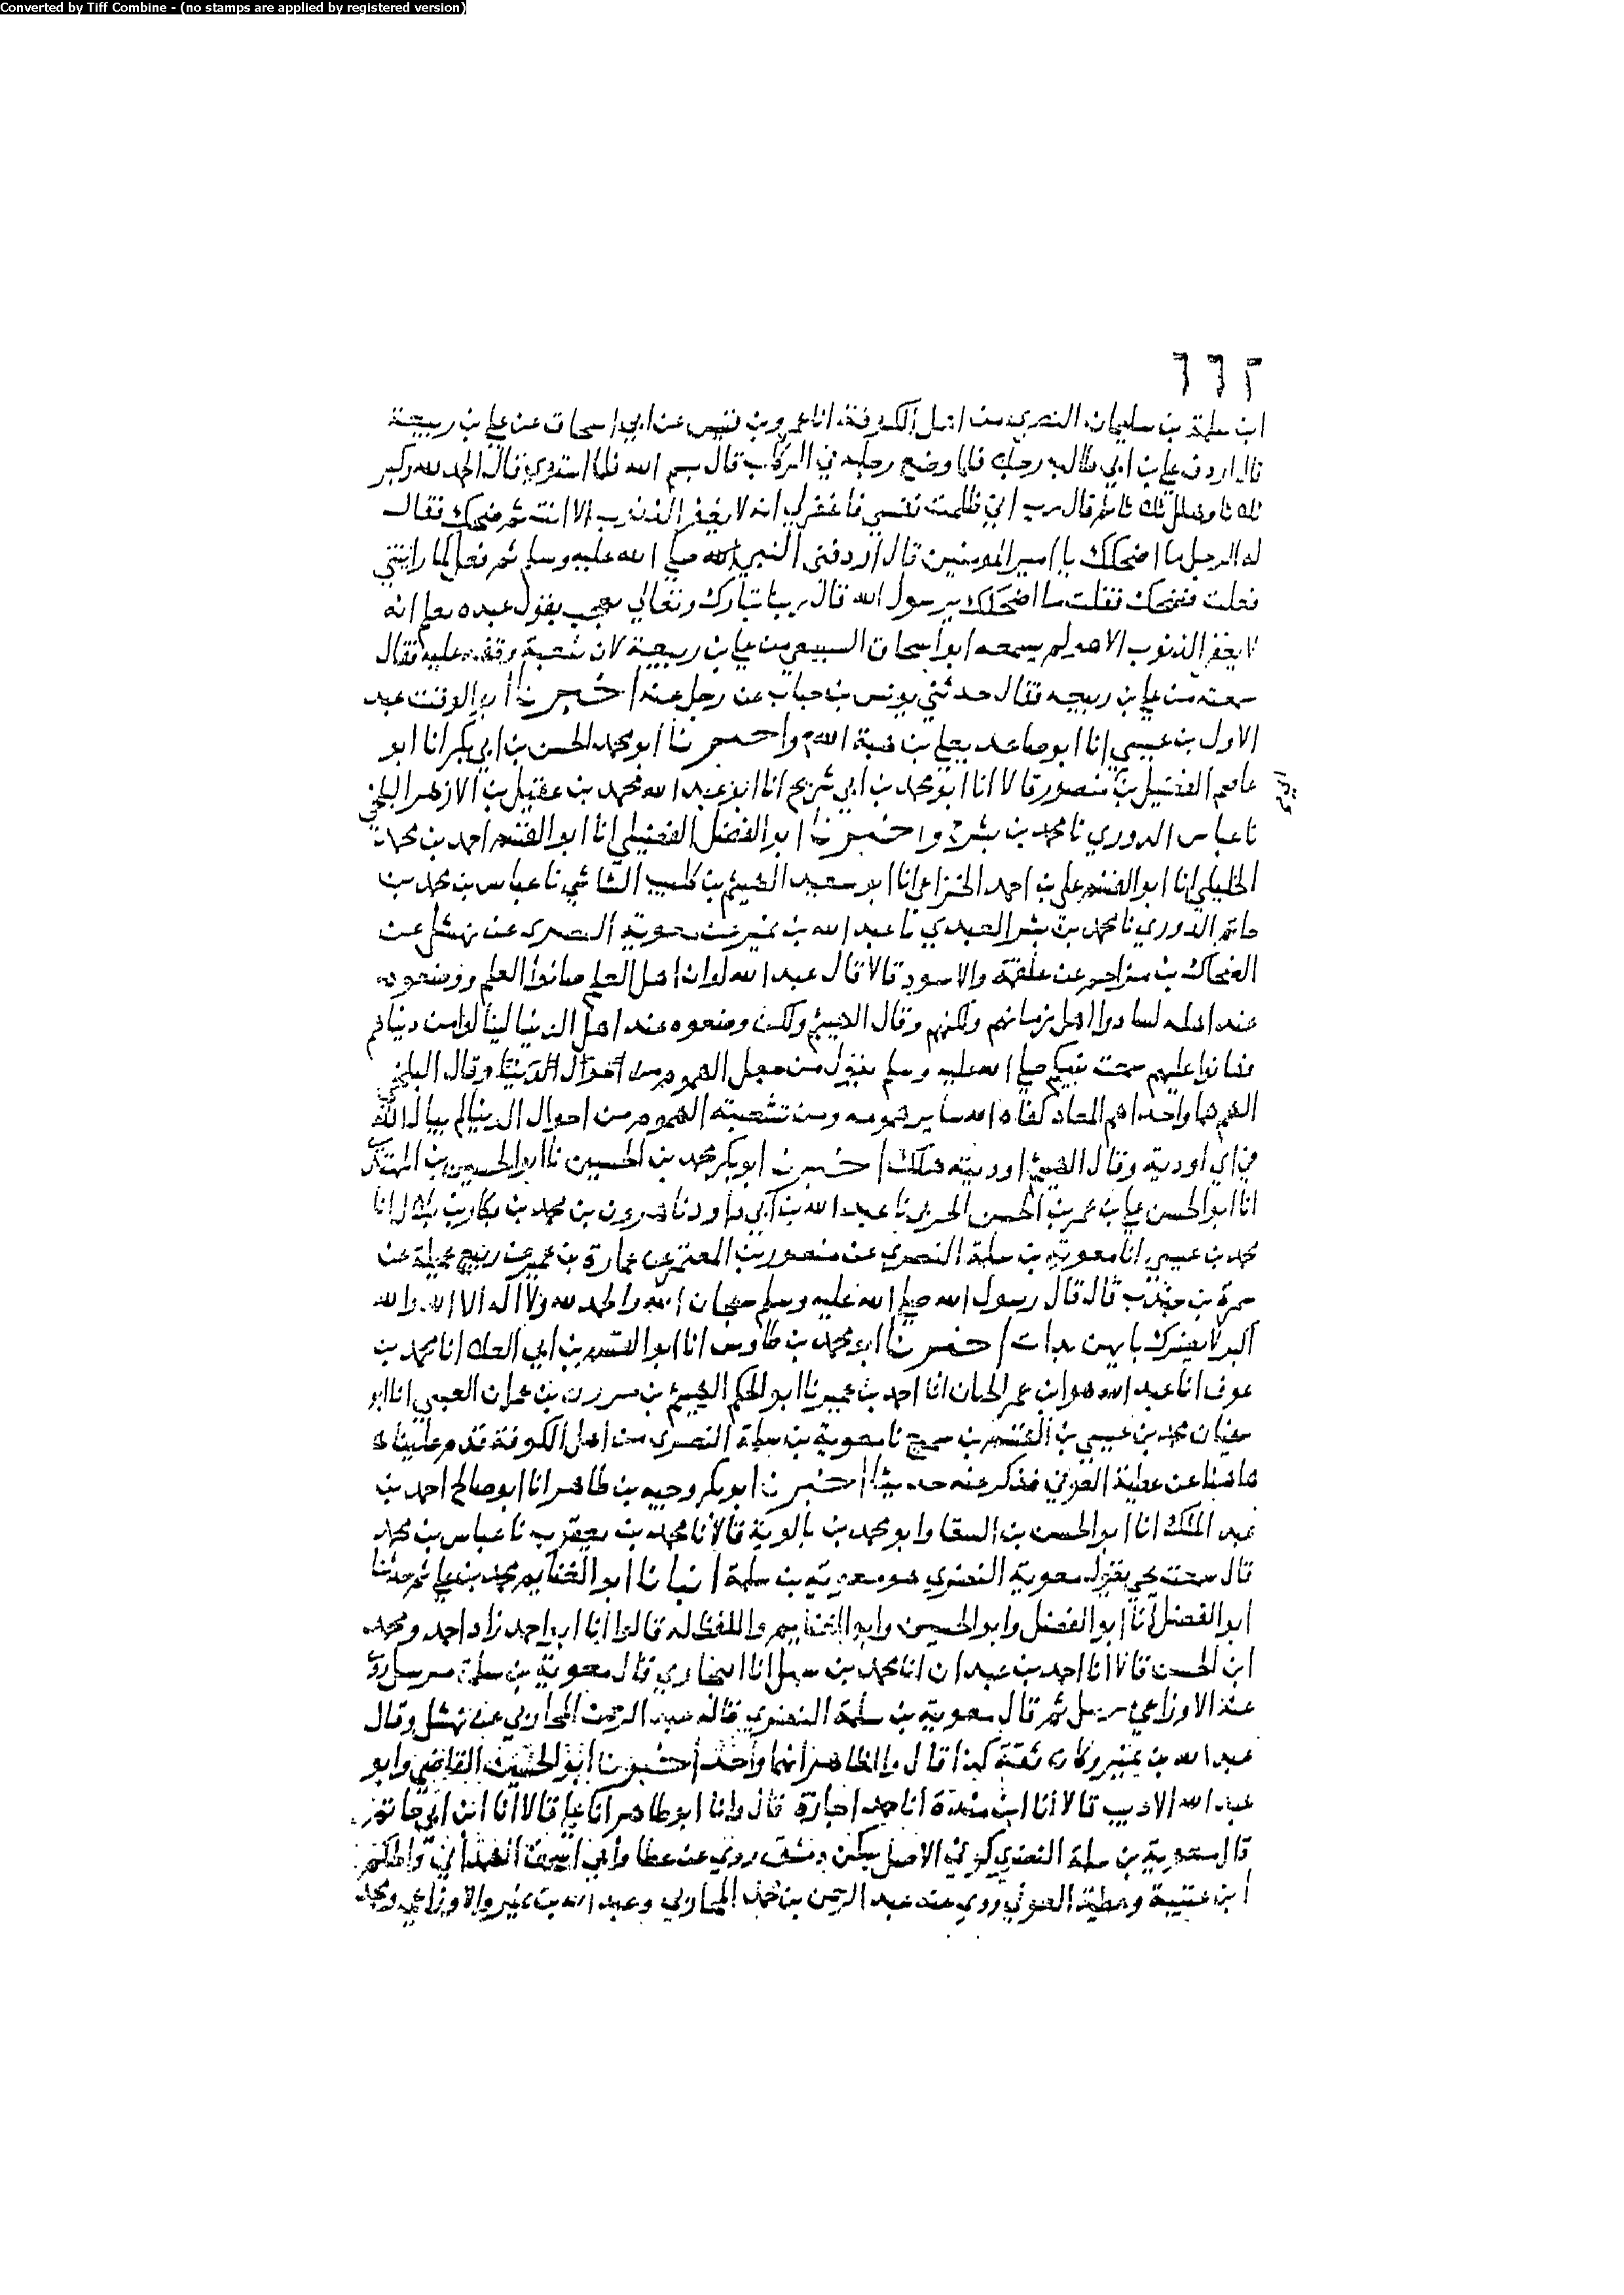 Converted by Tiff Combine - (no stamps are applied by registered version)
٦٦٢
ابن سلمة بن سليمان النصري من اهل الكوفة انا عمرو بن قيس عن ابي اسحاق عن علي بن ربيعة
قال اردف علي بن ابي طالب رجلا فلما وضع رجله في الركاب قال بسم الله فلما استوى قال الحمد لله وكبر
ثلاثا وهلل ثلاثا ثم قال رب اني ظلمت نفسي فاغفر لي انه لا يغفر الذنوب الا انت ثم ضحك فقال
له الرجل ما اضحكك يا امير المومنين قال اردفني النبي صلى الله عليه وسلم ثم فعل كما رايتني
فعلت فضحك فقلت ما اضحكك يرسول الله قال ربنا تبارك وتعالي يعجب بقول عبده يعلم انه
لا يغفر الذنوب الا هو لم يسمعه ابو اسحاق السبيعي من علي بن ربيعة لان شعبة وقفه عليه فقال
سمعته من علي بن ربيعه فقال حدثني يونس بن خباب عن رجل عنه اخبرنا ابو الوقت عبد
الاول بن عيسى انا ابو صاعد يعلى بن هبة الله واخبرنا ابو محمد الحسن بن ابي بكر انا ابو
عاصم الفضيل بن منصور قالا انا ابو محمد بن ابي شريح انا ابو عبد الله محمد بن عقيل بن الازهر البلخي
نا عباس الدوري نا محمد بن بشر واخبرنا ابو الفضل الفضيلي انا ابو القسم احمد بن محمد
الخليلي انا ابو القسم علي بن احمد الخزاعي انا ابو سعيد الهيثم بن كليب الشاشي نا عباس بن محمد بن
حاتم الدوري نا محمد بن بشر العبدي نا عبد الله بن نمير عن معوية النصري عن نهشل عن
الضحاك بن مزاحم عن علقمة والاسود قالا قال عبد الله لو ان اهل العلم صانوا العلم ووضعوه
عند اهله لسادوا اهل زمانهم ولكنهم وقال الهيثم ولكن وضعوه عند اهل الدنيا لينالوا من دنياهم
فهانوا عليهم سمعت نبيكم صلى الله عليه وسلم يقول من جعل الهموم من احوال الدنيا وقال البلخي
الهم هما واحدا هم المعاد كفاه الله ساير همومه ومن تشعبته الهموم من احوال الدنيا لم يبال الله
في اي اوديته وقال الهيثم اوديته هلك اخبرنا ابو بكر محمد بن الحسين نا ابو الحسين بن المهتدي
انا ابو الحسن علي بن عمر بن الحسن الحربي نا عبد الله بن ابي داود نا هرون بن محمد بن بكار بن بلال انا
محمد بن عيسى انا معوية بن سلمة النصري عن منصور بن المعتمر عن عمارة بن عمير عن ربيع عميلة عن
سمرة بن جندب قال قال رسول الله صلى الله عليه وسلم سبحان الله والحمد لله ولا اله الا الله والله
اكبر لا يضرك بايهن بدات اخبرنا ابو محمد بن طاوس انا ابو القسم بن ابي العلا انا محمد بن
عوف انا عبد الله هو ابن عمر انا احمد بن عمير نا ابو الحكم الهيثم بن مروان بن عمران العبسي انا ابو
سفيان محمد بن عيسى بن القسم بن سميع نا معوية بن سلمة النصري من اهل الكوفة قدم علينا ها
هاهنا عن عطية العوفي فذكر عنه حديثا اخبرنا ابو بكر وجيه بن طاهر انا ابو صالح احمد بن
عبد الملك انا ابو الحسن بن السقا وابو محمد بن بالوية قالا نا محمد بن يعقوب نا عباس بن محمد
قال سمعت يحيى يقول معوية النصري هو معوية بن سلمة انبانا ابو الغنايم محمد بن علي ثم حدثنا
ابو الفضل انا ابو الفضل وابو الحسين وابو الغنايم واللفظ له قالوا انا ابو احمد زاد احمد ومحمد
ابن الحسن قالا انا احمد بن عبدان انا محمد بن سهل انا البخاري قال معوية بن سلمة مرسل روى
عنه الاوزاعي مرسل ثم قال معوية بن سلمة النصري قاله عبد الرحمن المحاربي عن نهشل وقال
عبد الله بن نمير وكان ثقة كذا قال والظاهر انهما واحد اخبرنا ابو الحسين القاضي وابو
عبد الله الاديب قالا انا ابن مندة انا حمد اجازة قال وانا ابو طاهر انا علي قالا انا ابن ابي حاتم
قال معوية بن سلمة النصري كوفي الاصل سكن دمشق روى عن عطا وابي اسحق الهمداني والحكم
ابن عتيبة وعطية العوفي روى عنه عبد الرحمن بن محمد المحاربي وعبد الله بن نمير والاوزاعي ومحمد